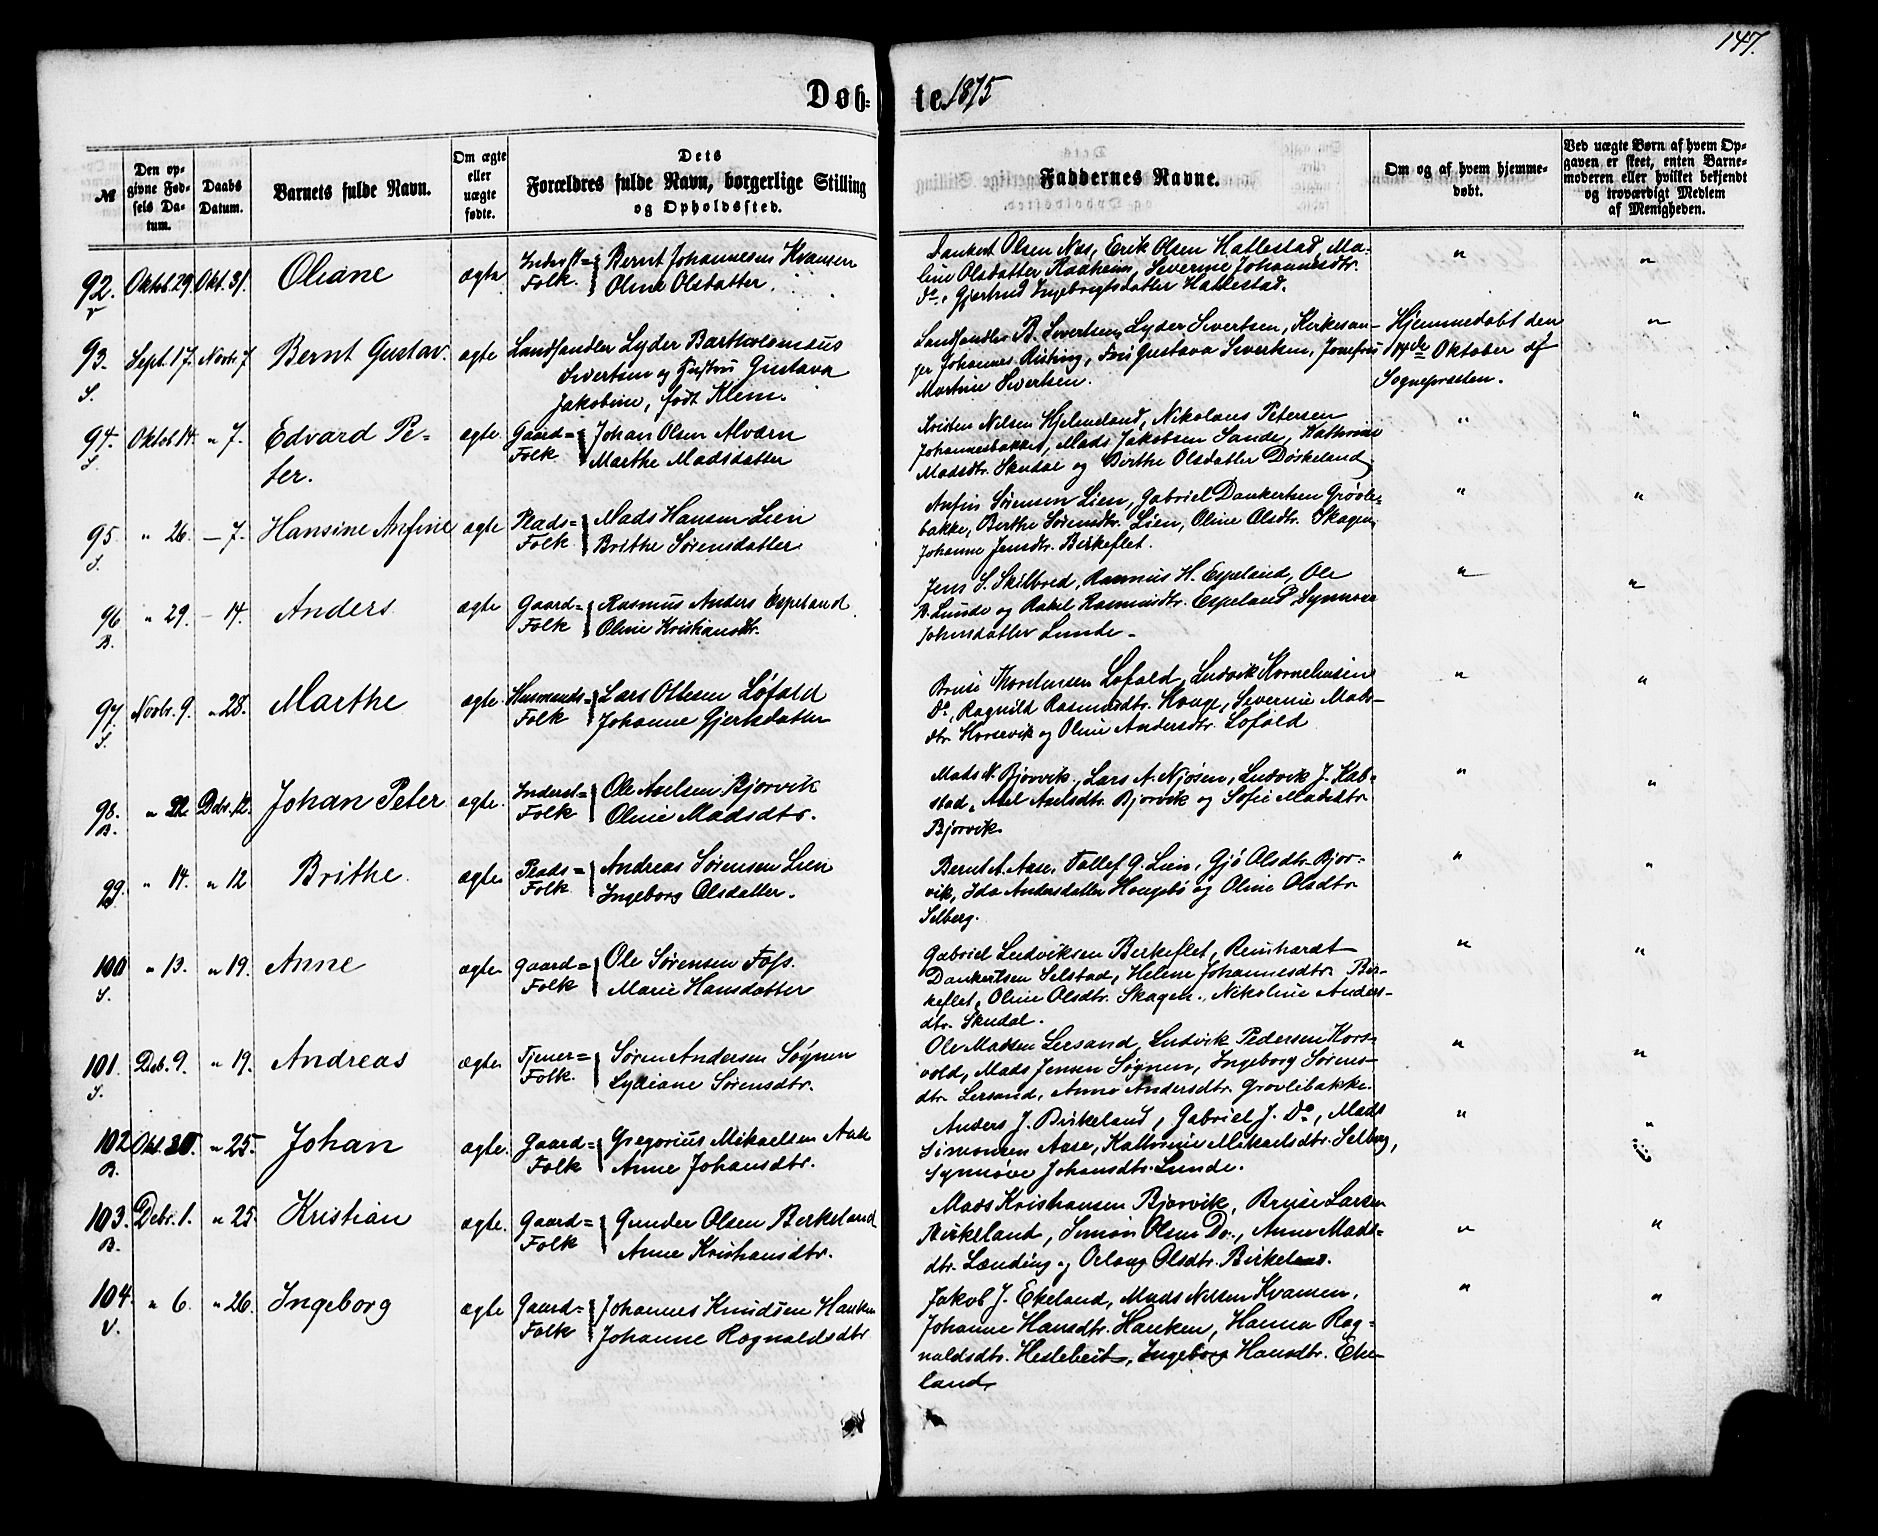 147.
Døb- te 1875
№
Den opgivne Fødsels Datum.
Daabs Datum.
Barnets fulde Navn.
Om ægte eller uægte fødte.
Dets Forældres fulde Navn, borgerlige Stilling og Opholdssted.
Faddernes Navne.
Om og af hvem hjemmedøbt.
Ved uægte Børn af hvem Opgaven er skeet, enten Barnemoderen eller hvilket bekjendt og troværdigt Medlem af Menigheden.
92. Oktob. 29. Okt. 31. Oliane ægte Inderst= Folk. Bernt Johannesen Kvamen
Oline Olsdatter.
Dankert Olsen Nas, Erik Olsen Hatlestad, Ma-
line Olsdatter Kadheim, Severine Johannesdtr.
Do, Gjertrud Ingebrigtsdatter Hatlestad. " "
93. S. Sept. 17. Novbr. 7. Bernt Gustav. ægte Landhandler Lyder Bartholomæus
Sivertsen og Hustru Gustava
Jakobine, født Klem.
Landhandler B. Sivertsen, Lyder Sivertsen, Kirkesan-
ger Johannes Rutring, Fru Gustava Sivertsen, Jomfru
Martine Sivertsen.
Hjemmedøbt den
14de Oktober af
Sognepræsten. "
94. S. Oktob. 14. " 7. Edvard Pe-
ter. ægte. Gaard= Folk Johan Olsen Alværn
Marthe Madsdatter
Kristen Nilsen Hjelmeland, Nikolaus Petersen
Johannesbakken, Mads Jakobsen Sande, Kathrine
Madsdtr. Skudal og Birthe Olsdatter Døskeland " "
95. S. " 26. – 7. Hansine Anfine ægte Plads= Folk Mads Hansen Lien
Brithe Sørensdatter
Anfin Sørensen Lien, Gabriel Dankertsen Grøvle-
bakke, Birthe Sørensdtr. Lien, Oline Olsdtr. Skagen,
Johanne Jensdtr. Birkeflet. " "
96 B. " 29. – 14. Anders ægte Gaard= Folk Rasmus Anders Espeland
Oline Kristiansdtr.
Jens S. Skilbred, Rasmus H. Espeland, Ole
R. Lunde og Rakel Rasmusdtr. Espeland Synnøve
Johnsdatter Lunde. " "
97. S. Novbr. 9. " 28. Marthe ægte. Husmands= Folk Lars Ottesen Løfald
Johanne Gjertsdatter
Bruse Thordensen Lofald, Ludvik Korneliusen
Do, Ragnild Rasmusdtr. Hauge, Severine Mads-
dtr. Horsevik og Oline Andersdtr. Lofald " "
98. B. " 22. Debr. 12. Johan Peter ægte. Inderst= Folk Ole Axelsen Bjorvik
Oline Madsdtr.
Mads N. Bjorvik, Lars A. Njøsen, Ludvik J. Kab-
stad, Axel Axelsdtr. Bjorvik og Sofie Madsdtr.
Bjorvik. " "
99. " 14. " 12 Brithe. ægte. Plads= Folk Andreas Sørensen Lien
Ingeborg Olsdatter.
Bernt A. Aase, Tallef G. Lien, Gjø Olsdtr. Bjor-
vik, Ida Andersdatter Hougebø og Oline Olsdtr.
Selberg. " "
100 S. " 13. " 19. Anne ægte. Gaard= Folk Ole Sørensen Foss.
Marie Hansdatter
Gabriel Ludviksen Birkeflet, Reinhardt
Dankertsen Selstad, Helene Johannesdtr. Bir-
keflet, Oline Olsdtr. Skagen, Nikoline Anders-
dtr. Skudal. " "
101. S. Deb. 9. " 19. Andreas ægte. Tjener= Folk. Søren Andersen Søgnen
Lydiane Sørensdtr.
Ole Madsen Lersand, Ludvik Pedersen Kors-
vold, Mads Jensen Søgnen, Ingeborg Sørens-
dtr. Lersand, Anne Andersdtr. Grovlebakke. " "
102 B. Okt. 30. " 25. Johan ægte. Gaard= Folk Gregorius Mikaelsen Aase
Anne Johansdtr.
Anders J. Birkeland, Gabriel J. Do, Mads
Simonsen Aase, Kathrine Mikaelsdtr. Selberg,
Synnøve Johansdtr. Lunde. " "
103. B. Debr. 1. " 25. Kristian ægte. Gaard= Folk Gunder Olsen Birkeland
Anne Kristiansdtr.
Mads Kristiansen Bjorvik, Bruse Larsen
Birkeland, Simon Olsen Do., Anne Mads-
dtr. Lænding og Orlaug Olsdtr. Birkeland. " "
104. V. " 6. " 26. Ingeborg ægte Gaard= Folk Johannes Knudsen Hauken
Johanne Ragnaldsdtr
Jakob J. Ekeland, Mads Nilsen Kvamen,
Johanne Hansdtr. Hauken, Hanna Rag-
naldsdtr. Hesleheit, Ingeborg Hansdtr. Eke-
land, " "